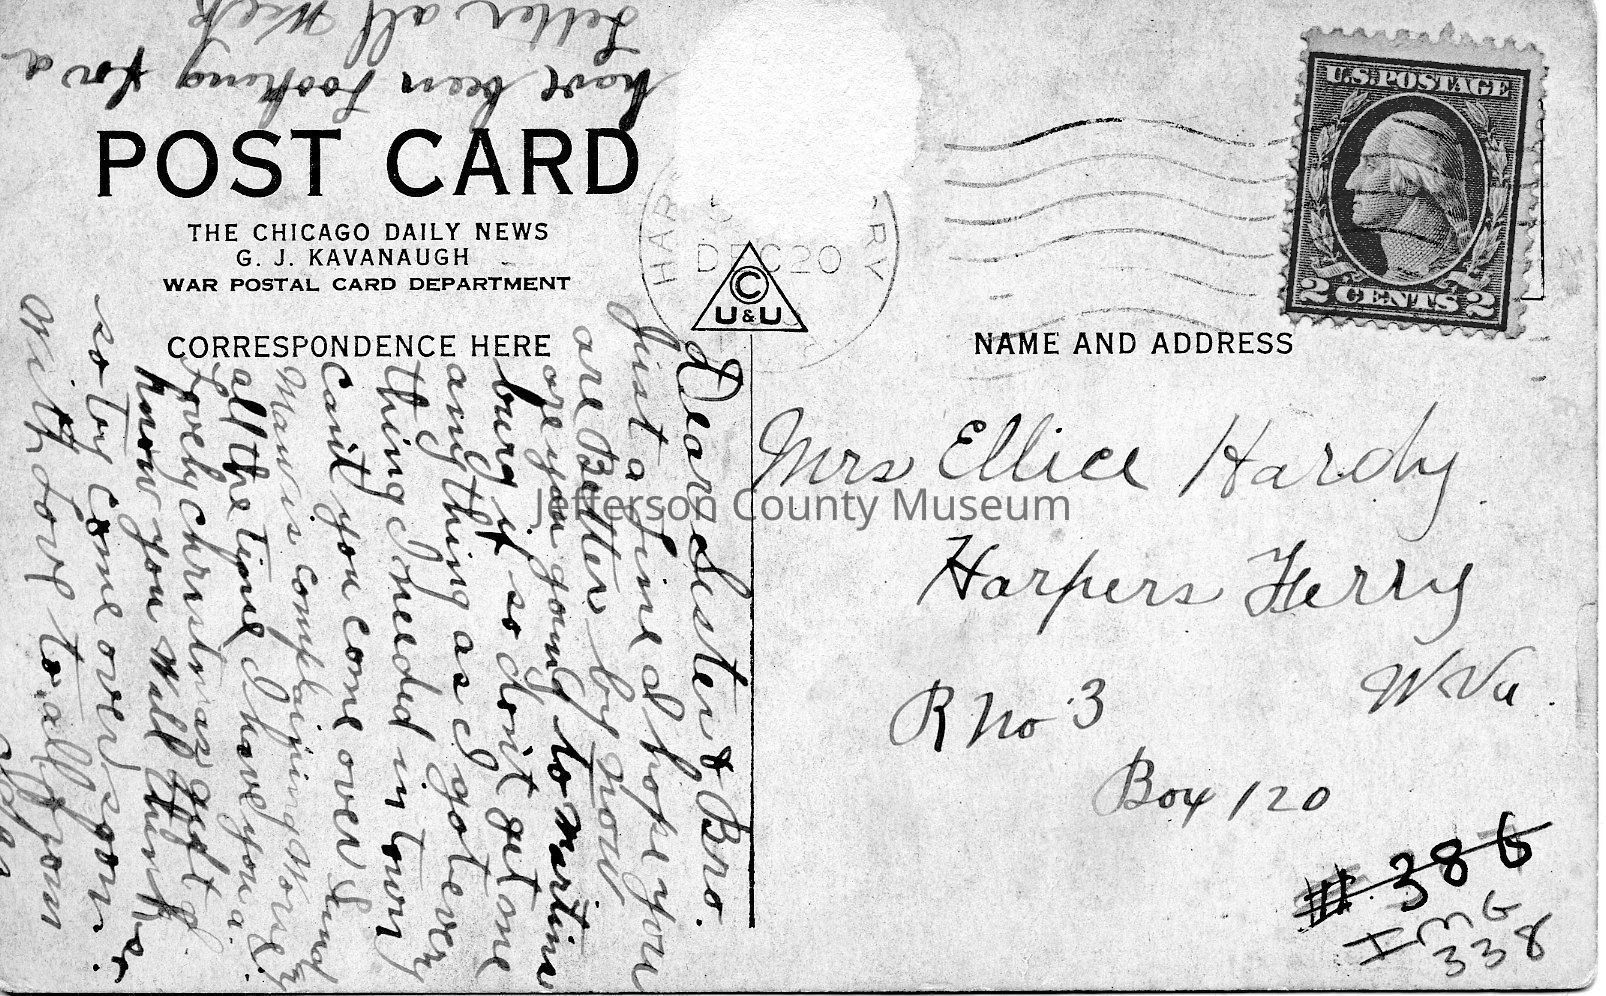 have been looking for a
Letter all Week
POST CARD
THE CHICAGO DAILY NEWS
G. J. KAVANAUGH
WAR POSTAL CARD DEPARTMENT
CORRESPONDENCE HERE
HAR
RY
DEC 20
C
U&U
U.S. POSTAGE
2 CENTS 2
NAME AND ADDRESS
Dear Sister & Bro.
Just a fine I hope you
are Better by now
are you going to martins
burg if so don't get me
anything as I got every
thing I need in town
Can't you come over Sund
Maw is complaining Worse
all the time I have you a
Lovely christmas gift
know you will think
so try come over soon.
With Love to all from
Mrs Ellice Hardy
Harpers Ferry
W Va.
R No 3
Box 120
# 386
IMG
338
Jefferson County Museum